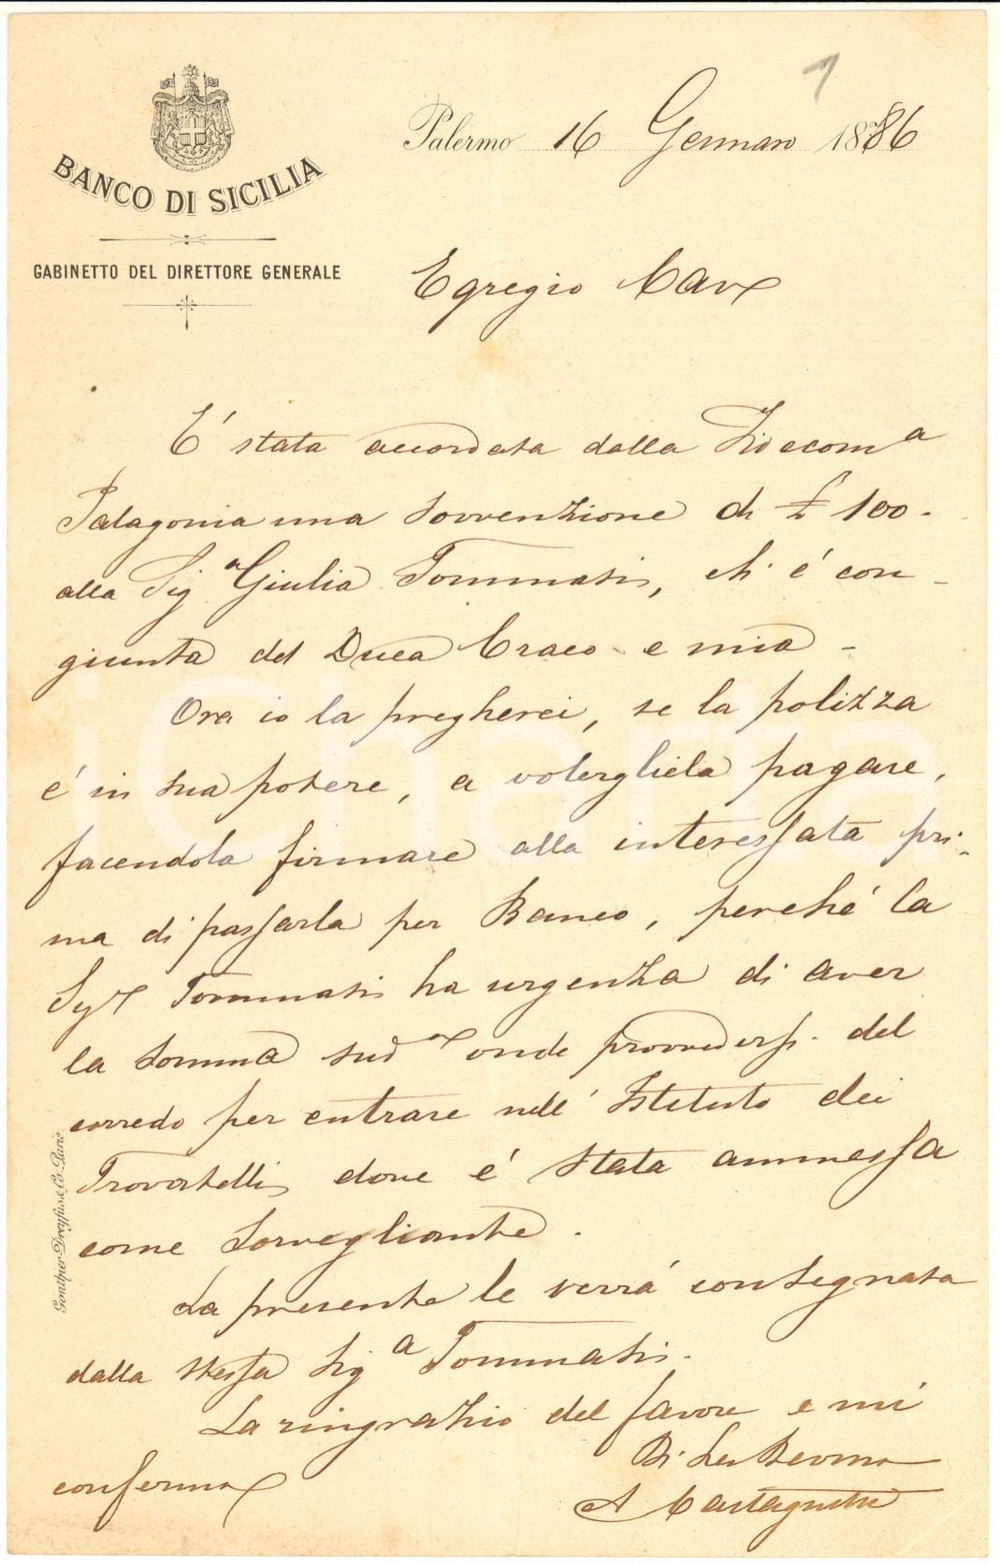 1
BANCO DI SICILIA
GABINETTO DEL DIRETTORE GENERALE
Palermo 16 Gennaro 1886
Egregio Cav
E' stata accordata dalla Fidecom.a
Palagonia una sovvenzione di £ 100.
alla Sig.a Giulia Tommasi, ch' è con-
giunta del Duca Craco e mia -
Ora io la pregherei, se la polizza
è in sua potere, a volergliela pagare,
facendola firmare alla interessata pri-
ma di passarla per Banco, perché la
Sig.a Tommasi ha urgenza di aver
la somma sud.a onde provvedersi del
corredo per entrare nell' Istituto dei
Trovatelli, dove è stata ammessa
come sorvegliante.
La presente le verrà consegnata
dalla stessa Sig.a Tommasi.
La ringrazio del favore e mi
conferma
Di Lei
Gonthier-Dreyfus & Co. Paris